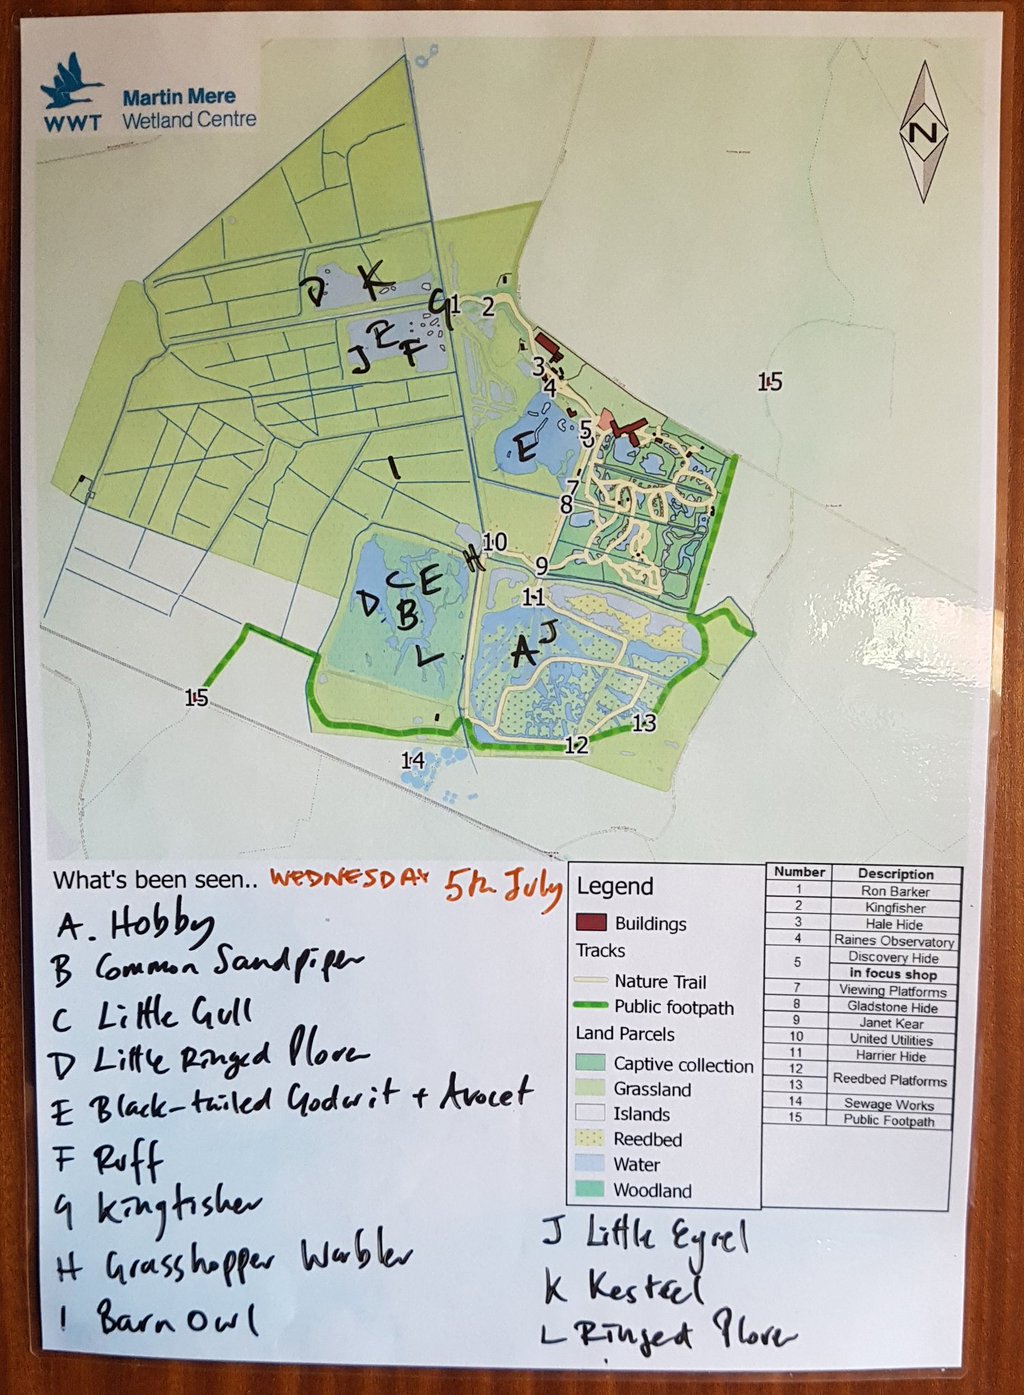 WWT
Martin Mere
Wetland Centre
N
D
K
G
1
2
E
J
F
3
4
15
E
5
6
7
8
I
H
10
9
11
C
E
D
B
L
A
J
15
13
12
14
What's been seen.. WEDNESDAY 5th July
A. Hobby
B Common Sandpiper
C Little Gull
D Little Ringed Plover
E Black-tailed Godwit + Avocet
F Ruff
G Kingfisher
H Grasshopper Warbler
I Barn Owl
J Little Egret
K Kestrel
L Ringed Plover
Legend
Buildings
Tracks
Nature Trail
Public footpath
Land Parcels
Captive collection
Grassland
Islands
Reedbed
Water
Woodland
Number Description
1 Ron Barker
2 Kingfisher
3 Hale Hide
4 Raines Observatory
5 Discovery Hide
in focus shop
7 Viewing Platforms
8 Gladstone Hide
9 Janet Kear
10 United Utilities
11 Harrier Hide
12
13 Reedbed Platforms
14 Sewage Works
15 Public Footpath